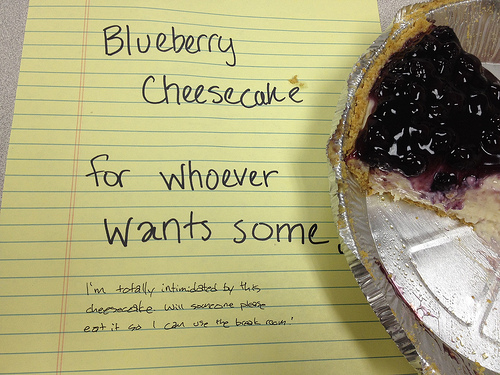 Blueberry
Cheesecake
for whoever
wants some.
I'm totally intimidated by this
cheesecake will someone please
eat it so I can use the break room!